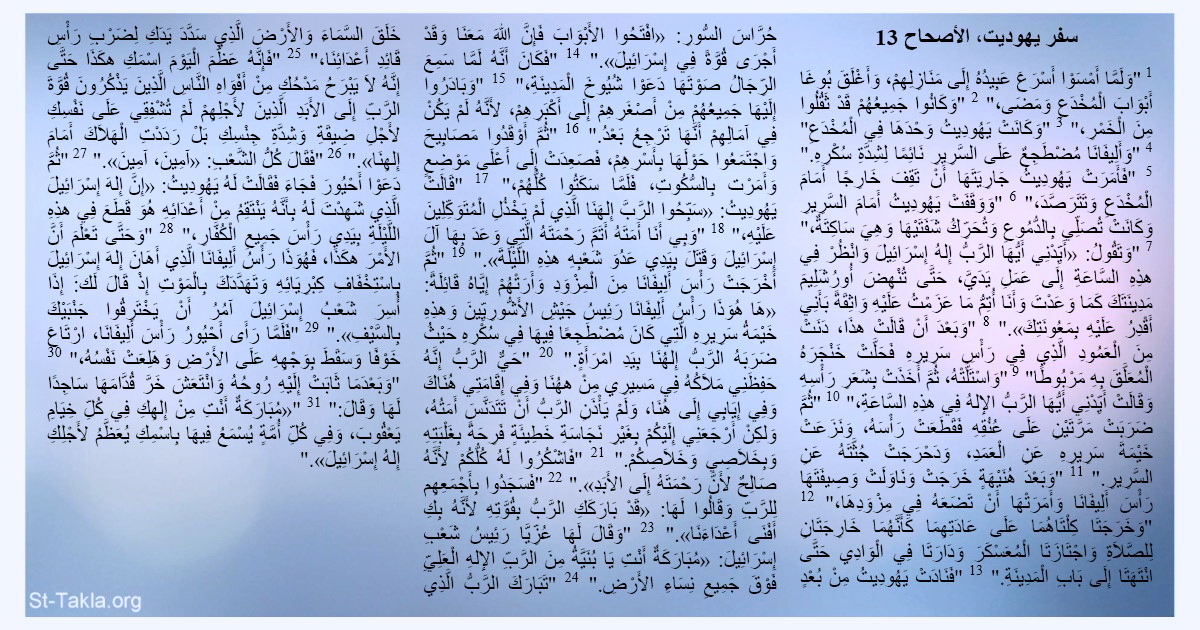 سفر يهوديت، الأصحاح 13
1 "وَلَمَّا أَمْسَوْا أَسْرَعَ عَبِيدُهُ إِلَى مَنَازِلِهِمْ، وَأَغْلَقَ بُوغَا
أَبْوَابَ الْمُخْدَعِ وَمَضَى،" 2 "وَكَانُوا جَمِيعُهُمْ قَدْ ثَقُلُوا
مِنَ الْخَمْرِ،" 3 "وَكَانَتْ يَهُودِيتُ وَحْدَهَا فِي الْمُخْدَعِ"
4 "وَأَلِيفَانَا مُضْطَجِعٌ عَلَى السَّرِيرِ نَائِمًا لِشِدَّةِ سُكْرِهِ."
5 "فَأَمَرَتْ يَهُودِيتُ جَارِيَتَهَا أَنْ تَقِفَ خَارِجًا أَمَامَ
الْمُخْدَعِ وَتَتَرَصَّدَ،" 6 "وَوَقَفَتْ يَهُودِيتُ أَمَامَ السَّرِيرِ
وَكَانَتْ تُصَلِّي بِالدُّمُوعِ وَتُحَرِّكُ شَفَتَيْهَا وَهِيَ سَاكِتَةٌ،"
7 "وَتَقُولُ: «أَيِّدْنِي أَيُّهَا الرَّبُّ إِلهُ إِسْرَائِيلَ وَانْظُرْ فِي
هذِهِ السَّاعَةِ إِلَى عَمَلِ يَدَيَّ، حَتَّى تُنْهِضَ أُورُشَلِيمَ
مَدِينَتَكَ كَمَا وَعَدْتَ وَأَنَا أُتِمُّ مَا عَزَمْتُ عَلَيْهِ وَاثِقَةً بِأَنِّي
أَقْدِرُ عَلَيْهِ بِمَعُونَتِكَ»." 8 "وَبَعْدَ أَنْ قَالَتْ هذَا، دَنَتْ
مِنَ الْعَمُودِ الَّذِي فِي رَأْسِ سَرِيرِهِ فَحَلَّتْ خَنْجَرَهُ
الْمُعَلَّقَ بِهِ مَرْبُوطًا" 9 "وَاسْتَلَّتْهُ، ثُمَّ أَخَذَتْ بِشَعَرِ رَأْسِهِ
وَقَالَتْ أَيِّدْنِي أَيُّهَا الرَّبُّ الإِلهُ فِي هذِهِ السَّاعَةِ،" 10 "ثُمَّ
ضَرَبَتْ مَرَّتَيْنِ عَلَى عُنْقِهِ فَقَطَعَتْ رَأْسَهُ، وَنَزَعَتْ
خَيْمَةَ سَرِيرِهِ عَنِ الْعَمَدِ، وَدَحْرَجَتْ جُثَّتَهُ عَنِ
السَّرِيرِ." 11 "وَبَعْدَ هُنَيْهَةٍ خَرَجَتْ وَنَاوَلَتْ وَصِيفَتَهَا
رَأْسَ أَلِيفَانَا وَأَمَرَتْهَا أَنْ تَضَعَهُ فِي مِزْوَدِهَا،" 12
"وَخَرَجَتَا كِلْتَاهُمَا عَلَى عَادَتِهِمَا كَأَنَّهُمَا خَارِجَتَانِ
لِلصَّلاَةِ وَاجْتَازَتَا الْمُعَسْكَرَ وَدَارَتَا فِي الْوَادِي حَتَّى
انْتَهَتَا إِلَى بَابِ الْمَدِينَةِ." 13 "فَنَادَتْ يَهُودِيتُ مِنْ بُعْدٍ
حُرَّاسَ السُّورِ: «افْتَحُوا الأَبْوَابَ فَإِنَّ اللهَ مَعَنَا وَقَدْ
أَجْرَى قُوَّةً فِي إِسْرَائِيلَ»." 14 "فَكَانَ أَنَّهُ لَمَّا سَمِعَ
الرِّجَالُ صَوْتَهَا دَعَوْا شُيُوخَ الْمَدِينَةِ،" 15 "وَبَادَرُوا
إِلَيْهَا جَمِيعُهُمْ مِنْ أَصْغَرِهِمْ إِلَى أَكْبَرِهِمْ، لأَنَّهُ لَمْ يَكُنْ
فِي آمَالِهِمْ أَنَّهَا تَرْجِعُ بَعْدُ." 16 "ثُمَّ أَوْقَدُوا مَصَابِيحَ
وَاجْتَمَعُوا حَوْلَهَا بِأَسْرِهِمْ، فَصَعِدَتْ إِلَى أَعْلَى مَوْضِعٍ
وَأَمَرَتْ بِالسُّكُوتِ، فَلَمَّا سَكَتُوا كُلُّهُمْ،" 17 "قَالَتْ
يَهُودِيتُ: «سَبِّحُوا الرَّبَّ إِلهَنَا الَّذِي لَمْ يَخْذُلِ الْمُتَوَكِّلِينَ
عَلَيْهِ،" 18 "وَبِي أَنَا أَمَتَهُ أَتَمَّ رَحْمَتَهُ الَّتِي وَعَدَ بِهَا آلَ
إِسْرَائِيلَ وَقَتَلَ بِيَدِي عَدُوَّ شَعْبِهِ هذِهِ اللَّيْلَةَ»." 19 "ثُمَّ
أَخْرَجَتْ رَأْسَ أَلِيفَانَا مِنَ الْمِزْوَدِ وَأَرَتْهُمْ إِيَّاهُ قَائِلَةً:
«هَا هُوَذَا رَأْسُ أَلِيفَانَا رَئِيسُ جَيْشِ الأَشُّورِيِّينَ وَهذِهِ
خَيْمَةُ سَرِيرِهِ الَّتِي كَانَ مُضْطَجِعًا فِيهَا فِي سُكْرِهِ حَيْثُ
ضَرَبَهُ الرَّبُّ إِلهُنَا بِيَدِ امْرَأَةٍ." 20 "حَيٌّ الرَّبُّ إِنَّهُ
حَفِظَنِي مَلاَكُهُ فِي مَسِيرِي مِنْ ههُنَا وَفِي إِقَامَتِي هُنَاكَ
وَفِي إِيَابِي إِلَى هُنَا، وَلَمْ يَأْذَنِ الرَّبُّ أَنْ تَتَدَنَّسَ أَمَتُهُ،
وَلكِنْ أَرْجَعَنِي إِلَيْكُمْ بِغَيْرِ نَجَاسَةِ خَطِيئَةٍ فَرِحَةً بِغَلَبَتِهِ
وَبِخَلاَصِي وَخَلاَصِكُمْ." 21 "فَاشْكُرُوا لَهُ كُلُّكُمْ لأَنَّهُ
صَالِحٌ لأَنَّ رَحْمَتَهُ إِلَى الأَبَدِ»." 22 "فَسَجَدُوا بِأَجْمَعِهِمْ
لِلرَّبِّ وَقَالُوا لَهَا: «قَدْ بَارَكَكِ الرَّبُّ بِقُوَّتِهِ لأَنَّهُ بِكِ
أَفْنَى أَعْدَاءَنَا»." 23 "وَقَالَ لَهَا عُزِّيَّا رَئِيسُ شَعْبِ
إِسْرَائِيلَ: «مُبَارَكَةٌ أَنْتِ يَا بُنَيَّةُ مِنَ الرَّبِّ الإِلهِ الْعَلِيِّ
فَوْقَ جَمِيعِ نِسَاءِ الأَرْضِ." 24 "تَبَارَكَ الرَّبُّ الَّذِي
خَلَقَ السَّمَاءَ وَالأَرْضَ الَّذِي سَدَّدَ يَدَكِ لِضَرْبِ رَأْسِ
قَائِدِ أَعْدَائِنَا،" 25 "فَإِنَّهُ عَظَّمَ الْيَوْمَ اسْمَكِ هكَذَا حَتَّى
إِنَّهُ لاَ يَبْرَحُ مَدْحُكِ مِنْ أَفْوَاهِ النَّاسِ الَّذِينَ يَذْكُرُونَ قُوَّةَ
الرَّبِّ إِلَى الأَبَدِ الَّذِينَ لأَجْلِهِمْ لَمْ تُشْفِقِي عَلَى نَفْسِكِ
لأَجْلِ ضِيقَةِ وَشِدَّةِ جِنْسِكِ بَلْ رَدَدْتِ الْهَلاَكَ أَمَامَ
إِلهِنَا»." 26 "فَقَالَ كُلُّ الشَّعْبِ: «آمِينَ، آمِينَ»." 27 "ثُمَّ
دَعَوْا أَحْيُورَ فَجَاءَ فَقَالَتْ لَهُ يَهُودِيتُ: «إِنَّ إِلهَ إِسْرَائِيلَ
الَّذِي شَهِدْتَ لَهُ بِأَنَّهُ يَنْتَقِمُ مِنْ أَعْدَائِهِ هُوَ قَطَعَ فِي هذِهِ
اللَّيْلَةِ بِيَدِي رَأْسَ جَمِيعِ الْكُفَّارِ،" 28 "وَحَتَّى تَعْلَمَ أَنَّ
الأَمْرَ هكَذَا، فَهُوَذَا رَأْسُ أَلِيفَانَا الَّذِي أَهَانَ إِلهَ إِسْرَائِيلَ
بِاسْتِخْفَافِ كِبْرِيَائِهِ وَتَهَدَّدَكَ بِالْمَوْتِ إِذْ قَالَ لَكَ: إِذَا
أُسِرَ شَعْبُ إِسْرَائِيلَ آمُرُ أَنْ يَخْتَرِقُوا جَنْبَيْكَ
بِالسَّيْفِ»." 29 "فَلَمَّا رَأَى أَحْيُورُ رَأْسَ أَلِيفَانَا، ارْتَاعَ
خَوْفًا وَسَقَطَ بِوَجْهِهِ عَلَى الأَرْضِ وَهَلِعَتْ نَفْسُهُ،" 30
"وَبَعْدَمَا ثَابَتْ إِلَيْهِ رُوحُهُ وَانْتَعَشَ خَرَّ قُدَّامَهَا سَاجِدًا
لَهَا وَقَالَ:" 31 "«مُبَارَكَةٌ أَنْتِ مِنْ إِلهِكِ فِي كُلِّ خِيَامِ
يَعْقُوبَ، وَفِي كُلِّ أُمَّةٍ يُسْمَعُ فِيهَا بِاسْمِكِ يُعَظَّمُ لأَجْلِكِ
إِلهُ إِسْرَائِيلَ»."
St-Takla.org